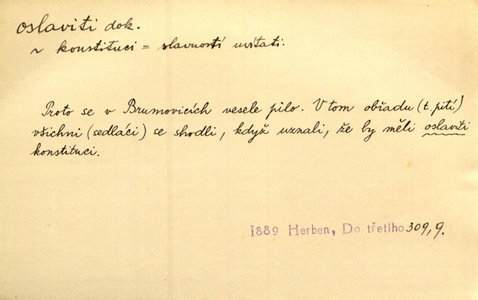 oslaviti dok.
~ konstituci = slavností uvítati.
Proto se v Brumovicích vesele pilo. V tom obřadu (t. pití)
všichni (sedláci) se shodli, když uznali, že by měli oslaviti
konstituci.
1889 Herben, Do třetího 309, 9.